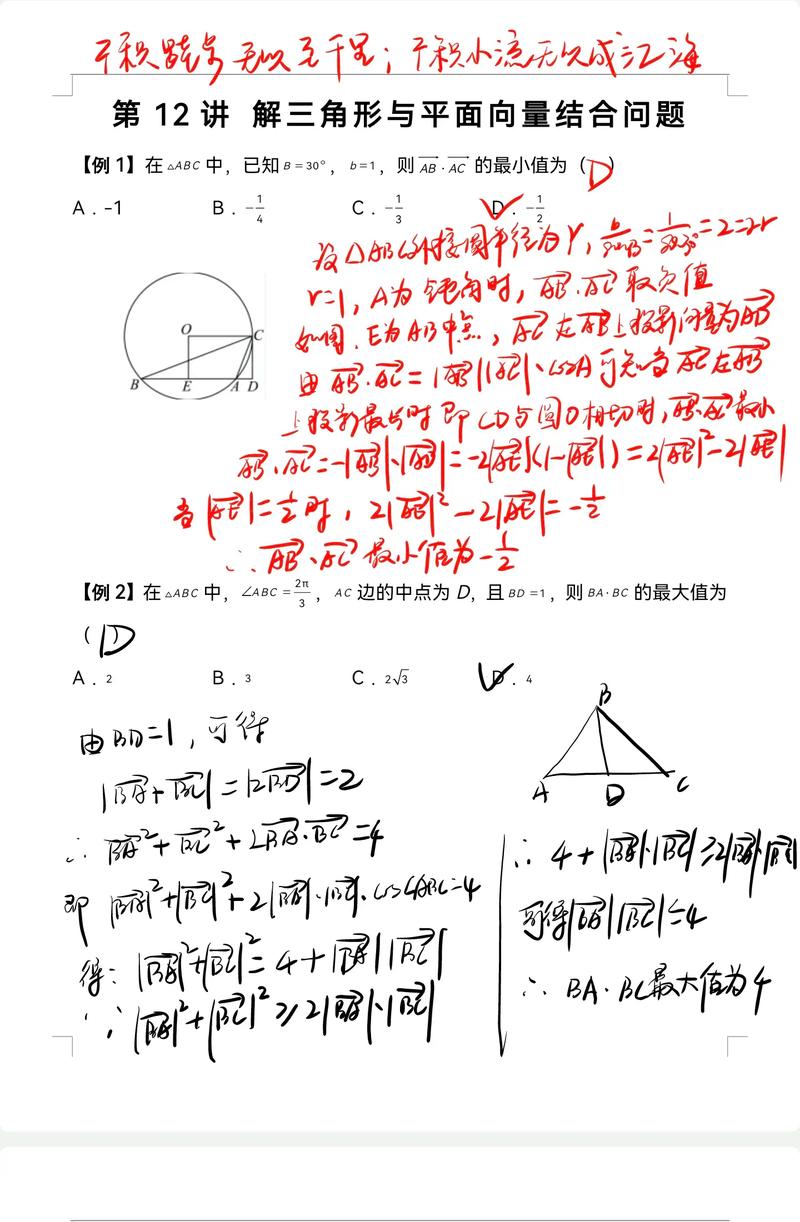 不积跬步 无以至千里；不积小流无以成江海
第 12 讲 解三角形与平面向量结合问题
【例 1】在 △ABC 中，已知 B=30°，b=1，则 \overrightarrow{AB}·\overrightarrow{AC} 的最小值为（D）
A．-1 B．-\frac{1}{4} C．-\frac{1}{3} D．-\frac{1}{2}
设△ABC外接圆半径为r，\frac{b}{sinB}=\frac{1}{sin30°}=2=2r
r=1，A为钝角时，\overrightarrow{AB}·\overrightarrow{AC}取负值
如图，E为AB中点，\overrightarrow{AC}在\overrightarrow{AB}上投影向量为\overrightarrow{AD}
由\overrightarrow{AB}·\overrightarrow{AC}=|\overrightarrow{AB}||\overrightarrow{AC}|·cosA可知当\overrightarrow{AC}在\overrightarrow{AB}
上投影最长时即CD与圆O相切时，\overrightarrow{AB}·\overrightarrow{AC}最小
\overrightarrow{AB}·\overrightarrow{AC}=-|\overrightarrow{AB}|·|\overrightarrow{AD}|=-2|\overrightarrow{AE}|(1-|\overrightarrow{AE}|)=2|\overrightarrow{AE}|²-2|\overrightarrow{AE}|
当|\overrightarrow{AE}|=\frac{1}{2}时，2|\overrightarrow{AE}|²-2|\overrightarrow{AE}|=-\frac{1}{2}
∴\overrightarrow{AB}·\overrightarrow{AC}最小值为-\frac{1}{2}
O C
B E A D
【例 2】在 △ABC 中，∠ABC=\frac{2π}{3}，AC 边的中点为 D，且 BD=1，则 BA·BC 的最大值为
（D）
A．2 B．3 C．2\sqrt{3} D．4
B
A D C
由BD=1，可得
|\overrightarrow{BA}+\overrightarrow{BC}|=|2\overrightarrow{BD}|=2
∴\overrightarrow{BA}²+\overrightarrow{BC}²+2\overrightarrow{BA}·\overrightarrow{BC}=4
即|\overrightarrow{BA}|²+|\overrightarrow{BC}|²+2|\overrightarrow{BA}|·|\overrightarrow{BC}|·cos∠ABC=4
得：|\overrightarrow{BA}|²+|\overrightarrow{BC}|²=4+|\overrightarrow{BA}||\overrightarrow{BC}|
∵|\overrightarrow{BA}|²+|\overrightarrow{BC}|²≥2|\overrightarrow{BA}|·|\overrightarrow{BC}|
∴4+|\overrightarrow{BA}|·|\overrightarrow{BC}|≥2|\overrightarrow{BA}|·|\overrightarrow{BC}|
可得|\overrightarrow{BA}||\overrightarrow{BC}|≤4
∴BA·BC最大值为4